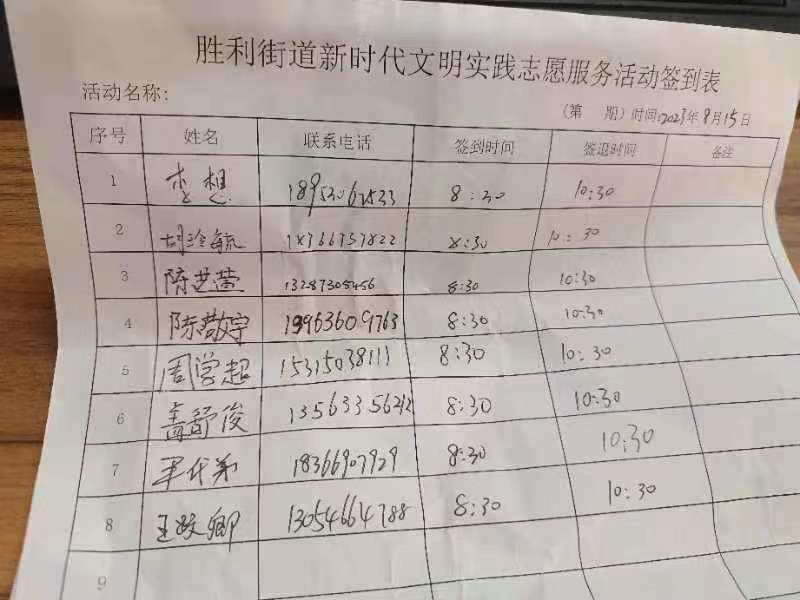 胜利街道新时代文明实践志愿服务活动签到表
活动名称:
(第 期) 时间:2023年8月15日
序号 姓名 联系电话 签到时间 签退时间 备注
1 李想 18953062533 8:30 10:30
2 18366757822 8:30 10:30
3 陈艺萱 13287305456 8:30 10:30
4 陈敬宇 19963609763 8:30 10:30
5 周学超 15315038111 8:30 10:30
6 孟舒俊 13563356212 8:30 10:30
7 18366907929 8:30 10:30
8 王姣卿 13054664788 8:30 10:30
9